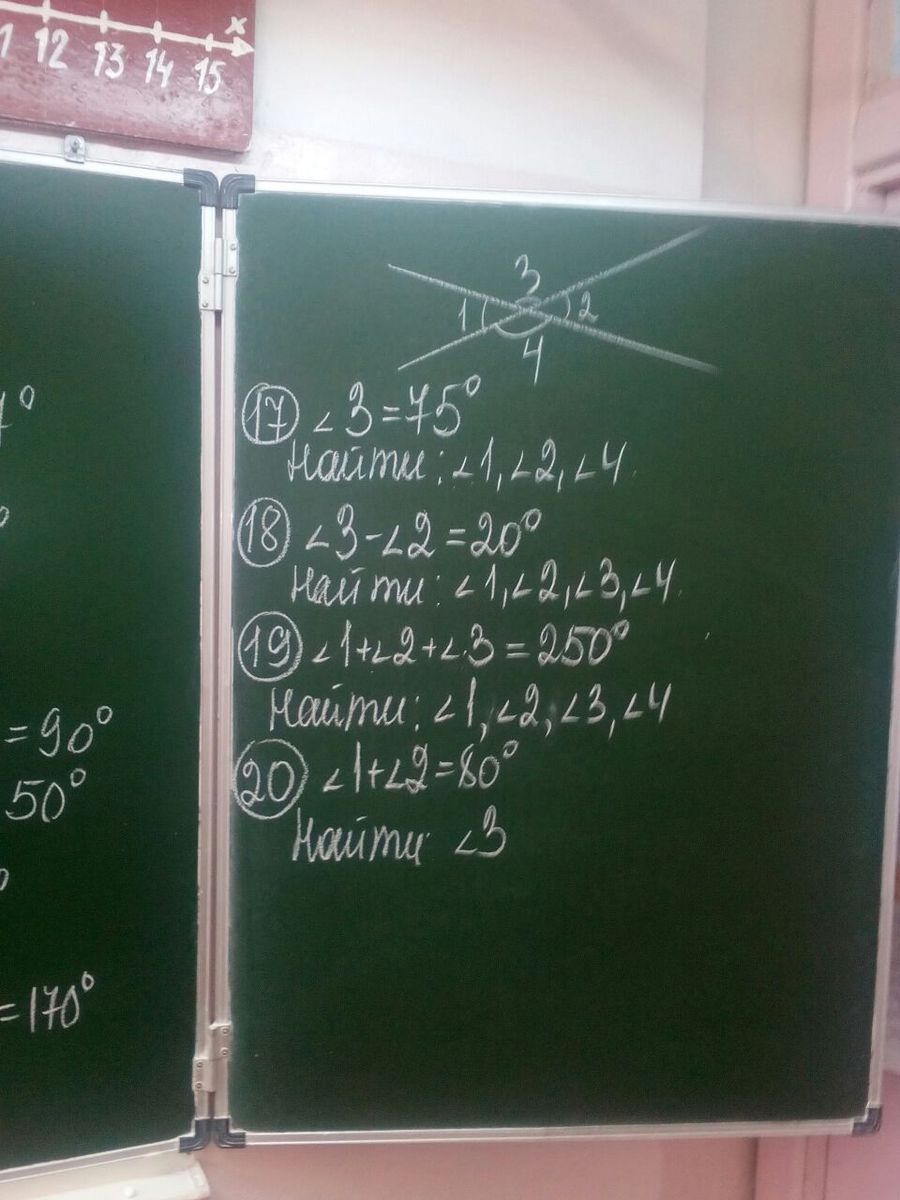 x
1 12 13 14 15
3
1 2
4
17 ∠3=75°
Найти: ∠1, ∠2, ∠4.
18 ∠3-∠2=20°
Найти: ∠1, ∠2, ∠3, ∠4.
19 ∠1+∠2+∠3=250°
Найти: ∠1, ∠2, ∠3, ∠4
20 ∠1+∠2=80°
Найти ∠3
=90°
50°
=170°